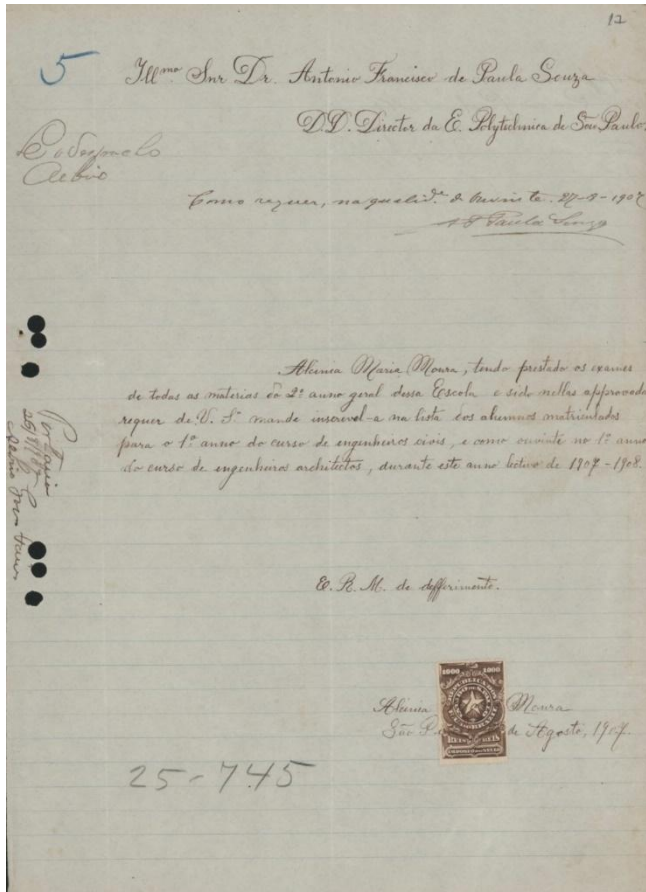 12
5
Ill.mo Snr Dr. Antonio Francisco de Paula Souza
D.D. Director da E. Polytechnica de São Paulo.
Como requer, na qualid.e de ouvinte. 27-8-1907
A F Paula Souza
Alcinia Maria Moura, tendo prestado os exames
de todas as materias do 2º anno geral dessa Escola e sido nellas approvada
requer de V. S.ª mande inscrevel-a na lista dos alumnos matriculados
para o 1º anno do curso de engenheiros civis, e como ouvinte no 1º anno
do curso de engenheiros architectos, durante este anno lectivo de 1907-1908.
E. R. M. de defferimento.
1000 1000
REIS REIS
Moura
São de Agosto, 1907.
25-745